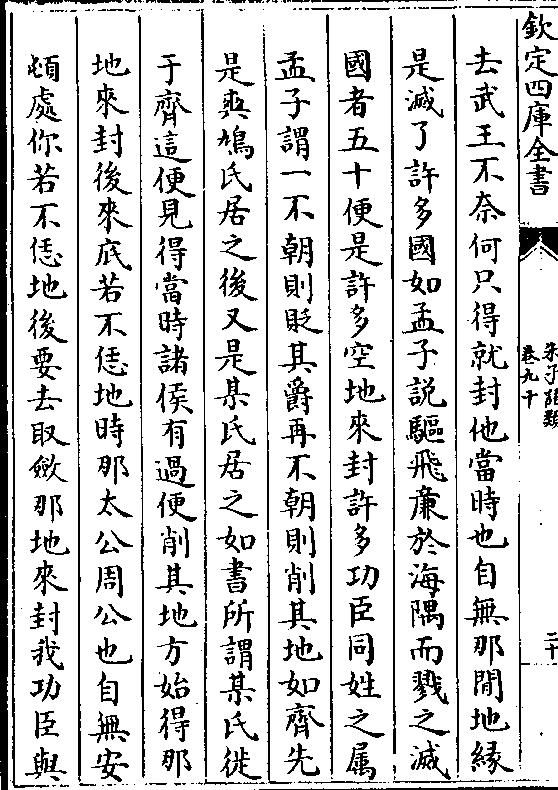 欽定四庫全書
朱子語類
卷九十
二十
去武王不奈何只得就封他當時也自無那閒地緣
是滅了許多國如孟子説驅飛廉於海隅而戮之滅
國者五十便是許多空地來封許多功臣同姓之属
孟子謂一不朝則貶其爵再不朝則削其地如齊先
是爽鳩氏居之後又是某氏居之如書所謂某氏徙
于齊這便見得當時諸侯有過便削其地方始得那
地來封後來底若不恁地時那太公周公也自無安
頓處你若不恁地後要去取斂那地來封我功臣與